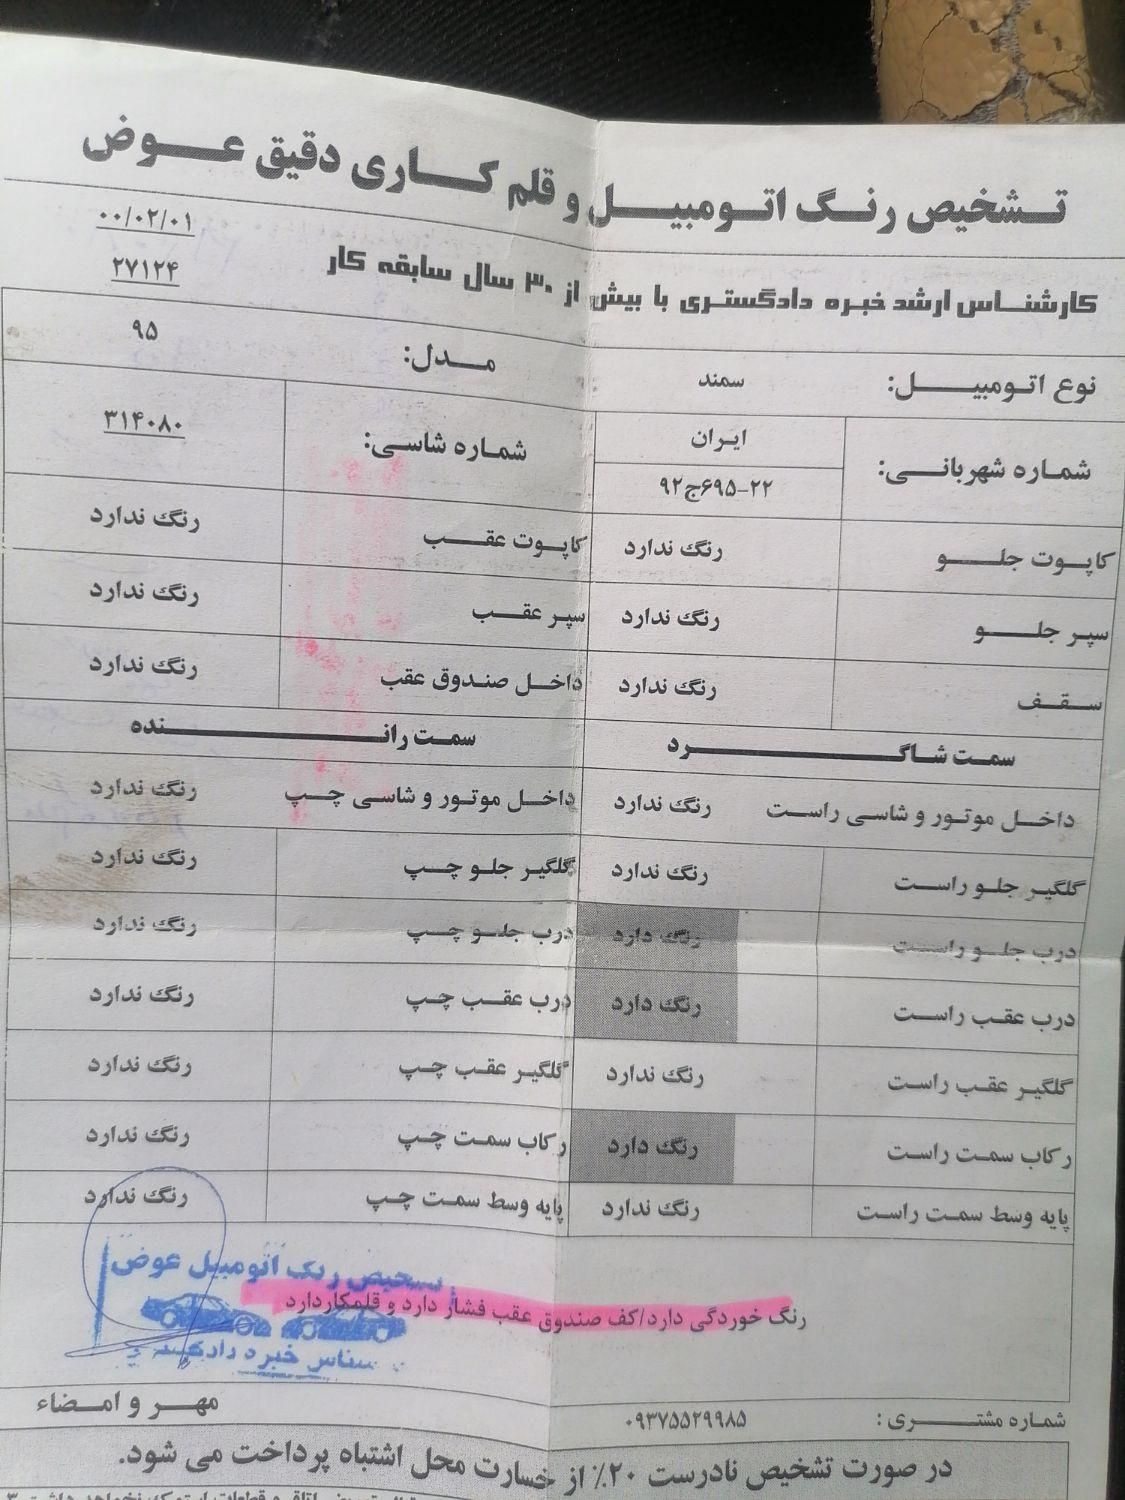 تشخیص رنگ اتومبیل و قلم کاری دقیق عوض
کارشناس ارشد خبره دادگستری با بیش از ۳۰ سال سابقه کار
۰۰/۰۲/۰۱
۲۷۱۲۴
نوع اتومبیل: سمند
مدل: ۹۵
شماره شهربانی: ایران
۲۲-۶۹۵ج۹۲
شماره شاسی: ۳۱۴۰۸۰
کاپوت جلو رنگ ندارد کاپوت عقب رنگ ندارد
سپر جلو رنگ ندارد سپر عقب رنگ ندارد
سقف رنگ ندارد داخل صندوق عقب رنگ ندارد
سمت شاگرد سمت راننده
داخل موتور و شاسی راست رنگ ندارد داخل موتور و شاسی چپ رنگ ندارد
گلگیر جلو راست رنگ ندارد گلگیر جلو چپ رنگ ندارد
درب جلو راست رنگ دارد درب جلو چپ رنگ ندارد
درب عقب راست رنگ دارد درب عقب چپ رنگ ندارد
گلگیر عقب راست رنگ ندارد گلگیر عقب چپ رنگ ندارد
رکاب سمت راست رنگ دارد رکاب سمت چپ رنگ ندارد
پایه وسط سمت راست رنگ ندارد پایه وسط سمت چپ رنگ ندارد
تشخیص رنگ اتومبیل عوض
رنگ خوردگی دارد/کف صندوق عقب فشار دارد و قلمکاردارد
خبره
شماره مشتری: ۰۹۳۷۵۵۲۹۹۸۵
مهر و امضاء
در صورت تشخیص نادرست ۲۰٪ از خسارت محل اشتباه پرداخت می شود.